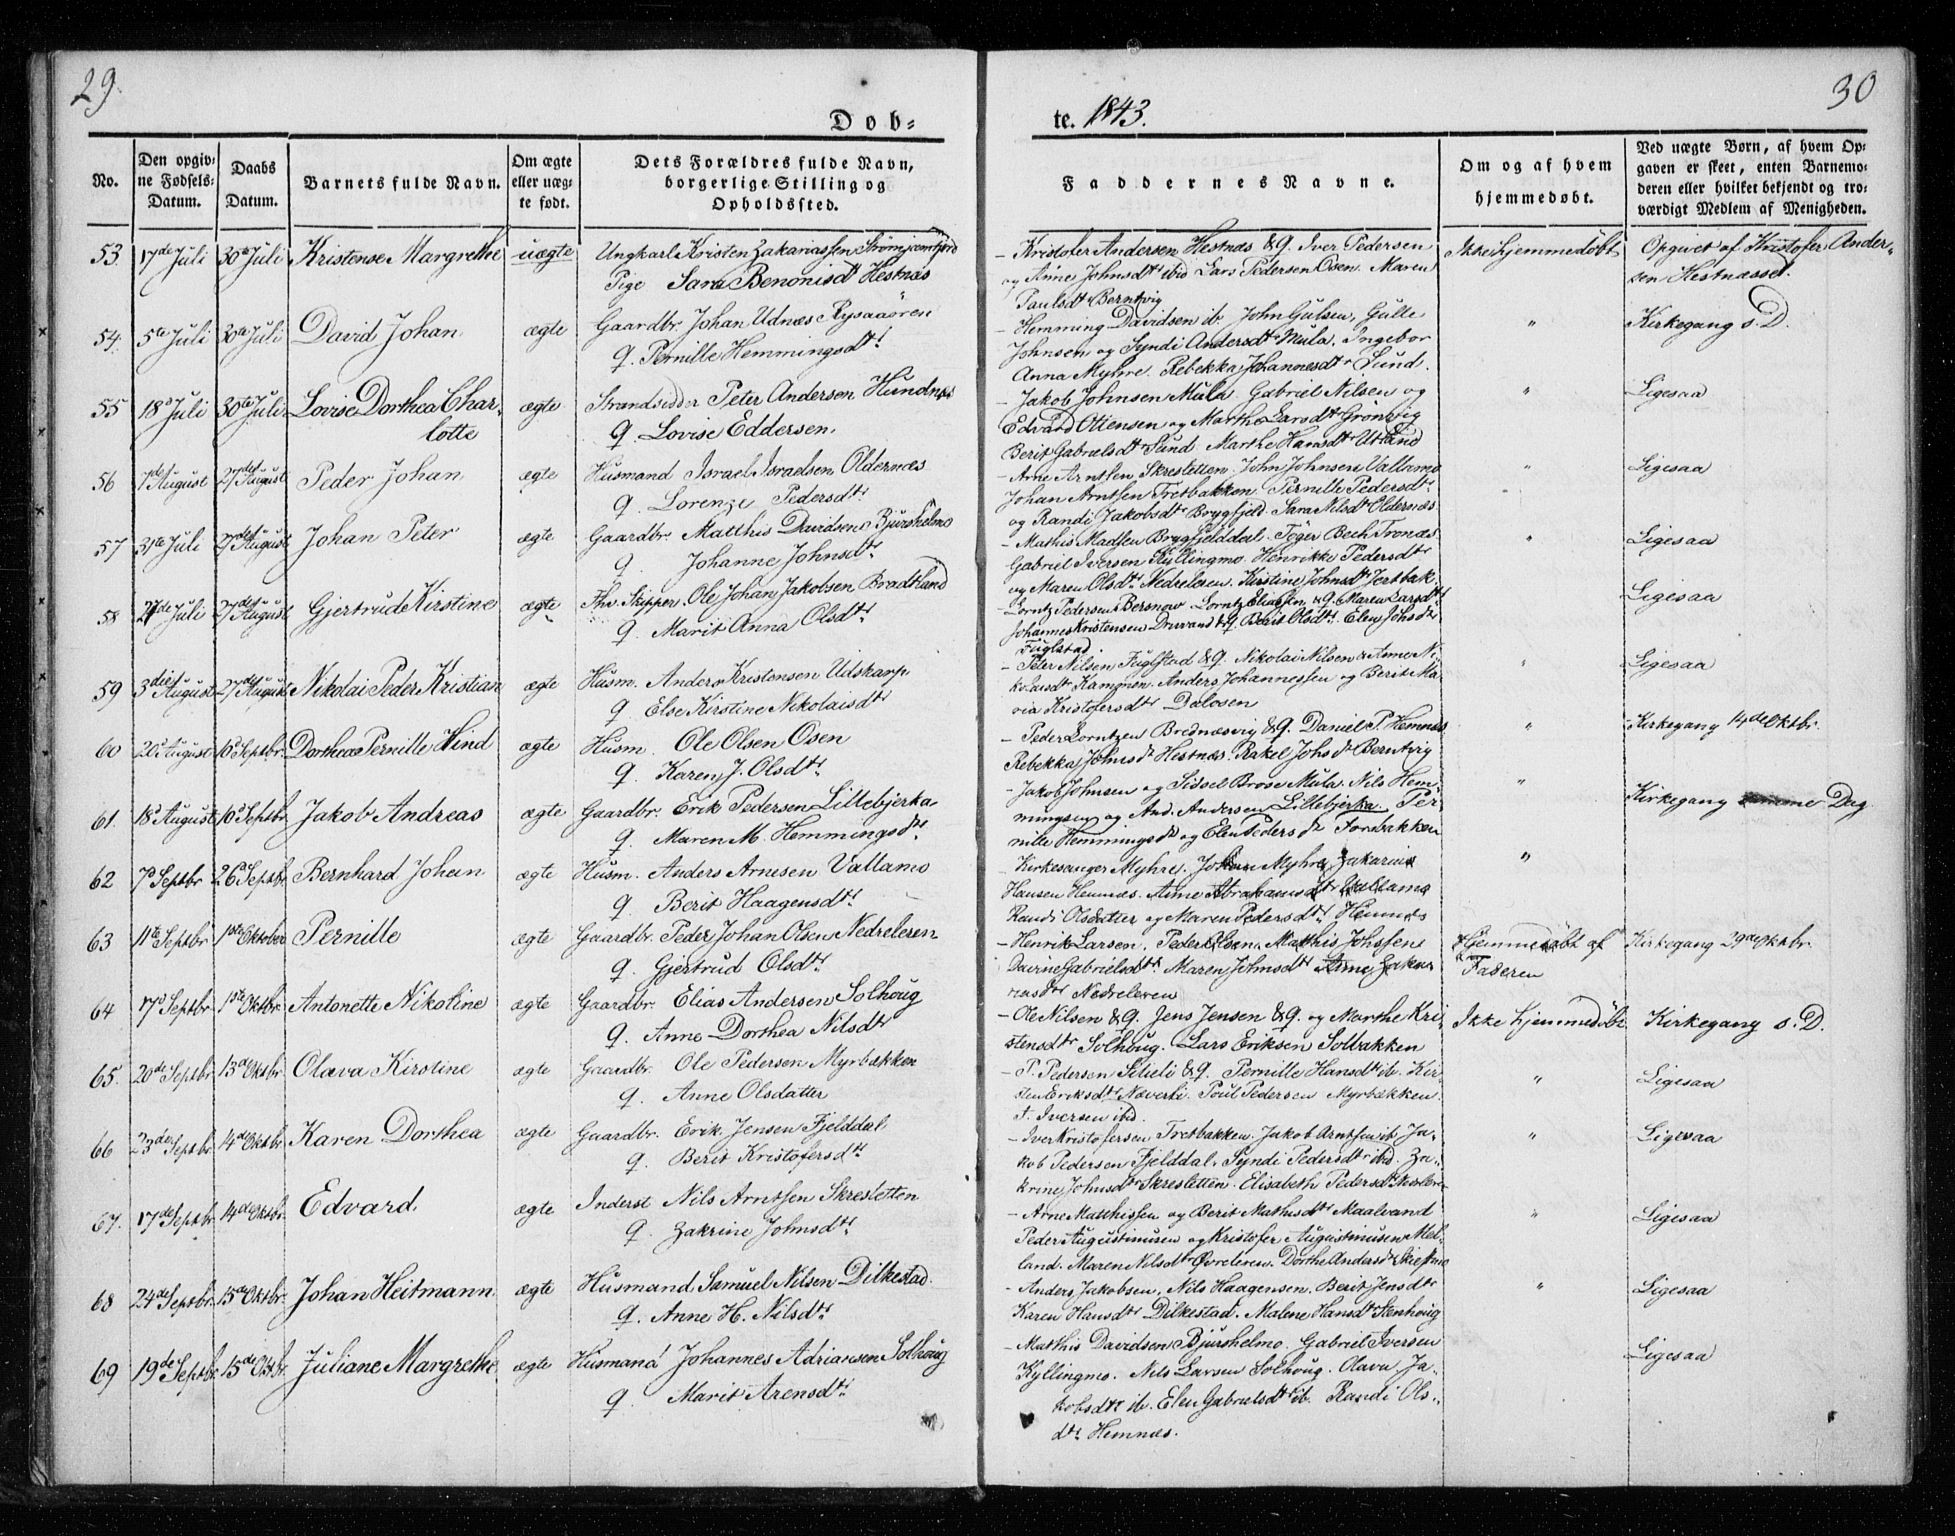 29.
30
Døb-
te. 1843.
No.
Den opgiv-
ne Fødsels-
Datum.
Daabs
Datum.
Barnets fulde Navn.
Om ægte
eller uæg-
te født.
Dets Forældres fulde Navn,
borgerlige Stilling og
Opholdssted.
Faddernes Navne.
Om og af hvem
hjemmedøbt.
Ved uægte Børn, af hvem Op-
gaven er skeet, enten Barnemo-
deren eller hvilket bekjendt og tro-
værdigt Medlem af Menigheden.
53 17de Juli 30te Juli Kristense Margrethe uægte Ungkarl Kristen Zakariassen
Pige Sara Benonisdtr Hestnæs
- Kristofer Andersen Hestnæs & q. Iver Pedersen
og Anne Johnsdtr ibid Lars Pedersen Osen. Maren
Paulsdtr Berntvig
Ikke hjemmedøbt
Opgivet af Kristofer Ander-
sen Hestnæsset.
54. 5te Juli 30te Juli David Johan ægte Gaardbr. Johan Udnæs Rysaaören
q. Pernille Hemmingsdtr
- Hemming Davidsen ib. John Gulsen, Gulle
Johnsen og Syndi Andersdtr Mula. Ingebor
Anna Myhre. Rebekka Johannesdtr Sund.
"
Kirkegang s. D.
55 18de Juli 30te Juli Lovise Dorthea Char-
lotte
ægte Strandsidder Peter Andersen Hundnæs
q Lovise Eddersen.
- Jakob Johnsen Mula Gabriel Nilsen og
Edvard Ottensen og Marthe Larsdtr Grönvig
Berit Gabrielsdtr Sund Marthe Hansdtr
"
Ligesaa
56 1de August 27de August Peder Johan ægte Husmand Israel Israelsen Oldernæs
q. Lorenze Pedersdtr
- Arne Arntsen Skresletten. John Johnsen Vallamo
Johan Arntsen Tretbakken. Pernille Pedersdtr
og Randi Jakobsdtr Brygfjeld. Sara Nilsdtr Oldernæs
"
Ligesaa
57 31te Juli 27de August Johan Peter ægte Gaardbr. Matthis Davidsen Bjurshelmo
q Johanne Johnsdtr
- Mathis Madsen Brygfjelddal. Töger Bech Tronæs
Gabriel Iversen Kyllingmo Henrikke Pedersdtr
og Maren Olsdtr Nedreleren. Kirstine Johnsdtr
"
Ligesaa
58 27de Juli 27de August Gjertrud Kirstine ægte Fhv. Skipper. Ole Johan Jakobsen Bradtland
q. Marit Anna Olsdtr
- Lorntz Pedersen Bersnow Lorntz Eliassen & q. Maren Larsdtr
Johannes Kristensen & q. Berit Olsdtr. Elen Johsdtr
Fuglstad
Ligesaa
59 3die August 27de August Nikolai Peder Kristian ægte Husm. Anders Kristensen Udskarp.
q. Else Kirstine Nikolaisdtr
- Peter Nilsen Fuglstad & q. Nikolai Nilsen & Anne Ni-
kolaisdtr Kammen. Anders Johannessen og Berit Ma-
ria Kristofersdtr Dalosen
"
Ligesaa
60 20de August 10de Septbr. Dorthea Pernille Hind ægte Husm. Ole Olsen Osen
q. Karen J. Olsdtr
- Peder Lorntzen Brednæsvig & q. Daniel P. Hemnæs
Rebekka Johnsdtr Hestnæs. Rakel Johsdtr Berntvig
"
Kirkegang 14de Oktbr.
61. 18de August 10de Septbr. Jakob Andreas ægte Gaardbr. Erik Pedersen Lillebjerka
q. Maren M. Hemmingsdtr
- Jakob Johnsen og Sissel Brose Mula. Nils Hem-
mingsen og And. Andersen Lillebjerka. Per-
nille Hemmingsdtr og Elen Pedersdtr Forsbakken
"
Kirkegang samme Dag
62 7de Septbr 26de Septbr. Bernhard Johan ægte Husm. Anders Arnesen Vallamo
q. Berit Haagensdtr
- Kirkesanger Myhre. Johan Myhre Zakarias
Hansen Hemnæs. Anne Abrahamsdtr Vallamo
Randi Olsdatter og Maren Pedersdtr Hemnæs
"
63 11te Septbr 1ste Oktober Pernille ægte Gaardbr. Peder Johan Olsen Nedreleren
q. Gjertrud Olsdtr
- Henrik Larsen. Peder Olsen. Mathis Johssen
Gabrielsdtr. Maren Johnsdtr Anne Zaka-
riasdtr Nedreleren
Hjemmedöbt af
Faderen
Kirkegang 29de Oktbr.
64 17de Septbr. 1ste Oktbr. Antonette Nikoline ægte Gaardbr. Elias Andersen Solhoug
q. Anne Dorthea Nilsdtr
- Ole Nilsen & q. Jens Jensen & q. og Marthe Kri-
stensdtr Solhoug. Lars Eriksen Solbakken
Ikke hjemmedöbt
Kirkegang s. D.
65. 20de Septbr. 13de Oktbr. Olava Kirstine ægte Gaardbr. Ole Pedersen Myrbækken
q. Anne Olsdatter
- P. Pedersen & q. Pernille Hansdtr ib. Kir-
sten Eriksdtr Næverli. Poul Pedersen Myrbækken.
Iversen ibid.
"
Ligesaa
66 23de Septbr. 14de Oktbr. Karen Dorthea ægte Gaardbr. Erik Jensen Fjelddal
q. Berit Kristofersdtr
- Iver Kristofersen Tretbakken. Jakob Arntsen ib. Ja-
kob Pedersen Fjelddal. Syndi Pedersdtr ibid. Za-
krine Johnsdtr Skresletten. Elisabeth Pedersdtr
"
Ligesaa
67. 17de Septbr. 14de Oktbr. Edvard. ægte Inderst Nils Arntsen Skresletten
q. Zakrine Johnsdtr
- Arne Matthissen og Berit Mathisdtr Maalvand
Peder Augustinusen og Kristofer Augustinusen Mel-
land. Maren Nilsdtr Øvreleren. Dorthe Andersdtr
"
Ligesaa
68 24de Septbr. 15de Oktbr. Johan Heitmann ægte Husmand Samuel Nilsen Dilkestad.
q. Anne H. Nilsdtr
- Anders Jakobsen. Nils Haagensen. Berit Jensdtr
Karen Hansdtr Dilkestad. Malene Hansdtr Stenhoug
"
Ligesaa
69 19de Septbr. 15de Oktbr. Juliane Margrethe ægte Husmand Johannes Adriansen Solhoug
q. Marit Arensdtr
- Matthis Davidsen Bjurshelmo. Gabriel Iversen
Kyllingmo. Nils Larsen Solhoug. Olava Ja-
kobsdtr ib. Elen Gabrielsdtr ib. Randi Ols-
dtr Hemnæs.
Ligesaa